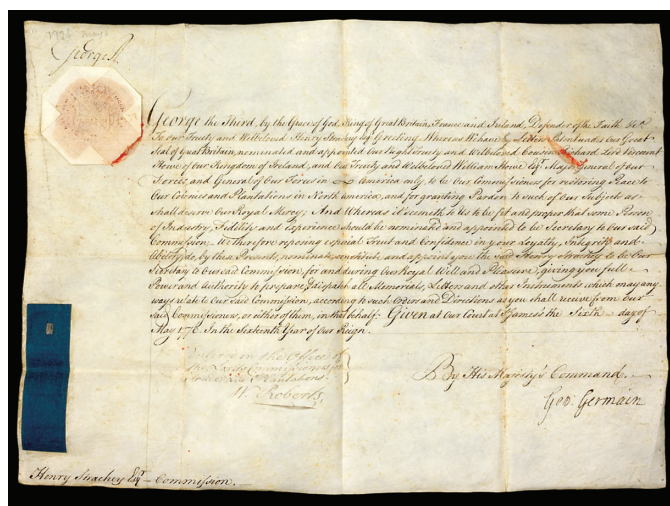 1726 May 6
George R.
George the Third, by the Grace of God, King of Great Britain, France and Ireland, Defender of the Faith &c.
To our Trusty and Welbeloved Henry Strachey Esq. Greeting. Whereas We have by Letters Patent under Our Great
Seal of Great Britain, nominated and appointed our Right Trusty and Welbeloved Cousin Richard Lord Viscount
Howe of our Kingdom of Ireland, and Our Trusty and Welbeloved William Howe Esqr. Major General of our
Forces, and General of Our Forces in America only, to be Our Commissioners for restoring Peace to
Our Colonies and Plantations in North America, and for granting Pardon to such of Our Subjects as
shall deserve Our Royal Mercy; And Whereas it seemeth to Us to be fit and proper that some Person
of Industry, Fidelity and Experience should be nominated and appointed to be Secretary to Our said
Commission. We therefore reposing especial Trust and Confidence in your Loyalty, Integrity and
Ability, do, by these Presents, nominate, constitute and appoint you the said Henry Strachey to be Our
Secretary to Our said Commission, for and during our Royal Will and Pleasure, giving you full
Power and Authority to prepare & dispatch all Memorials, Letters and other Instruments which may any
ways relate to Our said Commission, according to such Orders and Directions as you shall receive from Our
said Commissioners, or either of them, in that behalf. Given at Our Court at St. James's the Sixth day of
May 1776. In the Sixteenth Year of Our Reign.
in the Office of
the Lords Commissioners for
Trade and Plantations.
W. Roberts,
By His Majesty's Command
Geo: Germain
Henry Strachey Esqr. Commission.